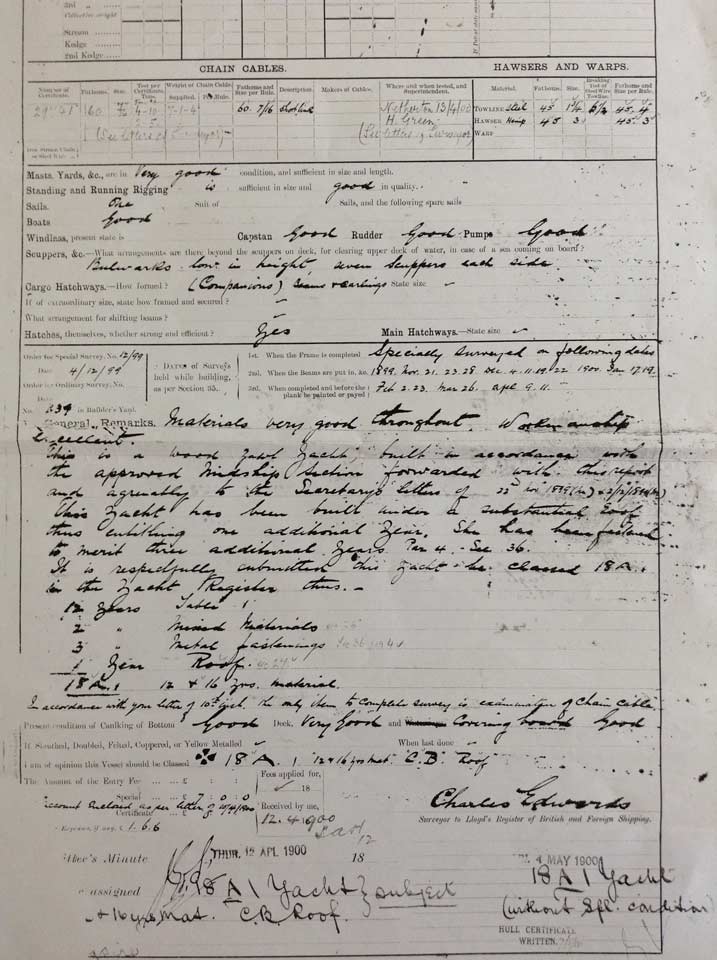 3rd "
Collective weight
Stream
Kedge
2nd Kedge
CHAIN CABLES. HAWSERS AND WARPS.
Number of Certificate. Fathoms. Size. Test per Certificate. Weight of Chain Cable. Fathoms and Size per Rule. Description. Makers of Cables. Where and when tested, and Superintendent. Material. Fathoms. Size. Breaking Test of Steel Wire Towline. Fathoms and Size per Rule.
Supplied. Per Rule.
60 7/16 60. 7/16 Netherton 13/4/00 TOWLINE Steel 45 45.
H. Green HAWSER Hemp 45 3 45. 3
(See letters of Surveyor) (See letters of Surveyor) WARP
Masts, Yards, &c., are in Very good condition, and sufficient in size and length.
Standing and Running Rigging is sufficient in size and good in quality.
Sails. One Suit of Sails, and the following spare sails
Boats Good
Windlass, present state is Capstan Good Rudder Good Pumps Good
Scuppers, &c.—What arrangements are there beyond the scuppers on deck, for clearing upper deck of water, in case of a sea coming on board?
Bulwarks low in height, seven scuppers each side.
Cargo Hatchways.—How formed? (Companions) Beams & Carlings State size
If of extraordinary size, state how framed and secured?
What arrangement for shifting beams?
Hatches, themselves, whether strong and efficient? Yes Main Hatchways.—State size
Order for Special Survey, No. 12/99
Date 4/12/99
Order for Ordinary Survey, No.
Date
No. 339 in Builder's Yard.
DATES of Surveys held while building, as per Section 35.
1st. When the Frame is completed Specially surveyed on following dates
2nd. When the Beams are put in, &c. 1899. Nov. 21. 23. 28. Dec. 4. 11. 19. 22 1900. Jan 17. 19.
3rd. When completed and before the plank be painted or payed Feb 2. 23. Mar 26. apl 9. 11.
General Remarks. Materials very good throughout. Workmanship
Excellent.
This is a wood Yawl Yacht, built in accordance with
the approved Midship Section forwarded with this report
and agreeably to the Secretary's letters of 22nd Nov 1899
This Yacht has been built under a substantial Roof
thus entitling one additional Year. She has been fastened
to merit three additional Years Par 4. Sec 36.
It is respectfully submitted this Yacht be classed 18 A.1
in the Yacht Register thus.—
12 Years Table 1
2 " Mixed Materials
3 " Metal fastenings
1 Year Roof.
18 A.1 12 & 16 yrs. material.
In accordance with your letter of 10th inst. the only item to complete survey is examination of chain cable
Present condition of Caulking of Bottom Good Deck, Very Good and Covering board Good
If Sheathed, Doubled, Felted, Coppered, or Yellow Metalled When last done
I am of opinion this Vessel should be Classed ✤ 18 A. 1 12 & 16 yrs mat. C.B. Roof
The Amount of the Entry Fee ... £ : : Fees applied for,
Special ... £ 7 : 0 : 0 18
account Enclosed as per letter of
Certificate Received by me,
Expenses, if any, £ 1. 6. 6 12. 4. 1900
Charles Edwards
Surveyor to Lloyd's Register of British and Foreign Shipping.
Committee's Minute THUR. 12 APL 1900 18 4 MAY 1900
assigned 18 A 1 Yacht } subject 18 A 1 Yacht
& 16 yrs Mat. C.B. Roof. (without Spl. condition)
HULL CERTIFICATE
WRITTEN.